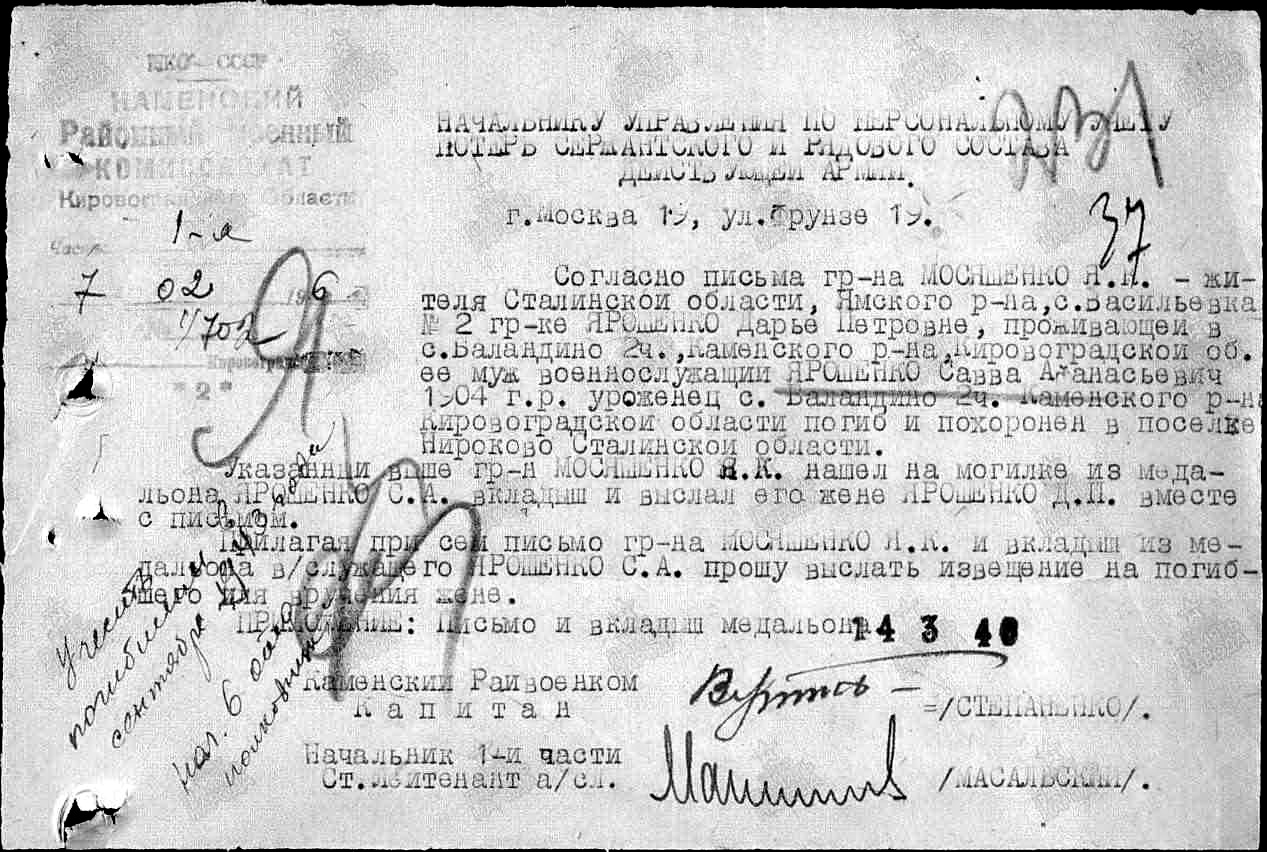 НКО СССР
КАМЕНСКИЙ
Районный Военный
КОМИССАРИАТ
Кировоградской Области
Часть 1-я
7 02 1946
№ 1/702
"2"
НАЧАЛЬНИКУ УПРАВЛЕНИЯ ПО ПЕРСОНАЛЬНОМУ УЧЕТУ
ПОТЕРЬ СЕРЖАНТСКОГО И РЯДОВОГО СОСТАВА
ДЕЙСТВУЮЩЕЙ АРМИИ.
г.Москва 19, ул.Фрунзе 19.
37
Согласно письма гр-на МОСЯШЕНКО Я.К. - жи-
теля Сталинской области, Ямского р-на,с.Васильевка
№ 2 гр-ке ЯРОШЕНКО Дарье Петровне, проживающей в
с.Баландино 2ч.,Каменского р-на,Кировоградской об.
ее муж военнослужащий ЯРОШЕНКО Савва Афанасьевич
1904 г.р. уроженец с. Баландино 2ч. Каменского р-на
Кировоградской области погиб и похоронен в поселке
Нироково Сталинской области.
Указанный выше гр-н МОСЯШЕНКО Я.К. нашел на могилке из меда-
льона ЯРОШЕНКО С.А. вкладыш и выслал его жене ЯРОШЕНКО Д.П. вместе
с письмом.
Прилагая при сем письмо гр-на МОСЯШЕНКО Я.К. и вкладыш из ме-
дальона в/служащего ЯРОШЕНКО С.А. прошу выслать извещение на погиб-
шего для вручения жене.
ПРИЛОЖЕНИЕ: Письмо и вкладыш медальона
14 3 46
Каменский Райвоенком
Капитан
=/СТЕПАНЕНКО/.
Начальник 1-й части
Ст.лейтенант а/сл.
/МАСАЛЬСКИЙ/.
Учесть
погибшим в
сентябре 43